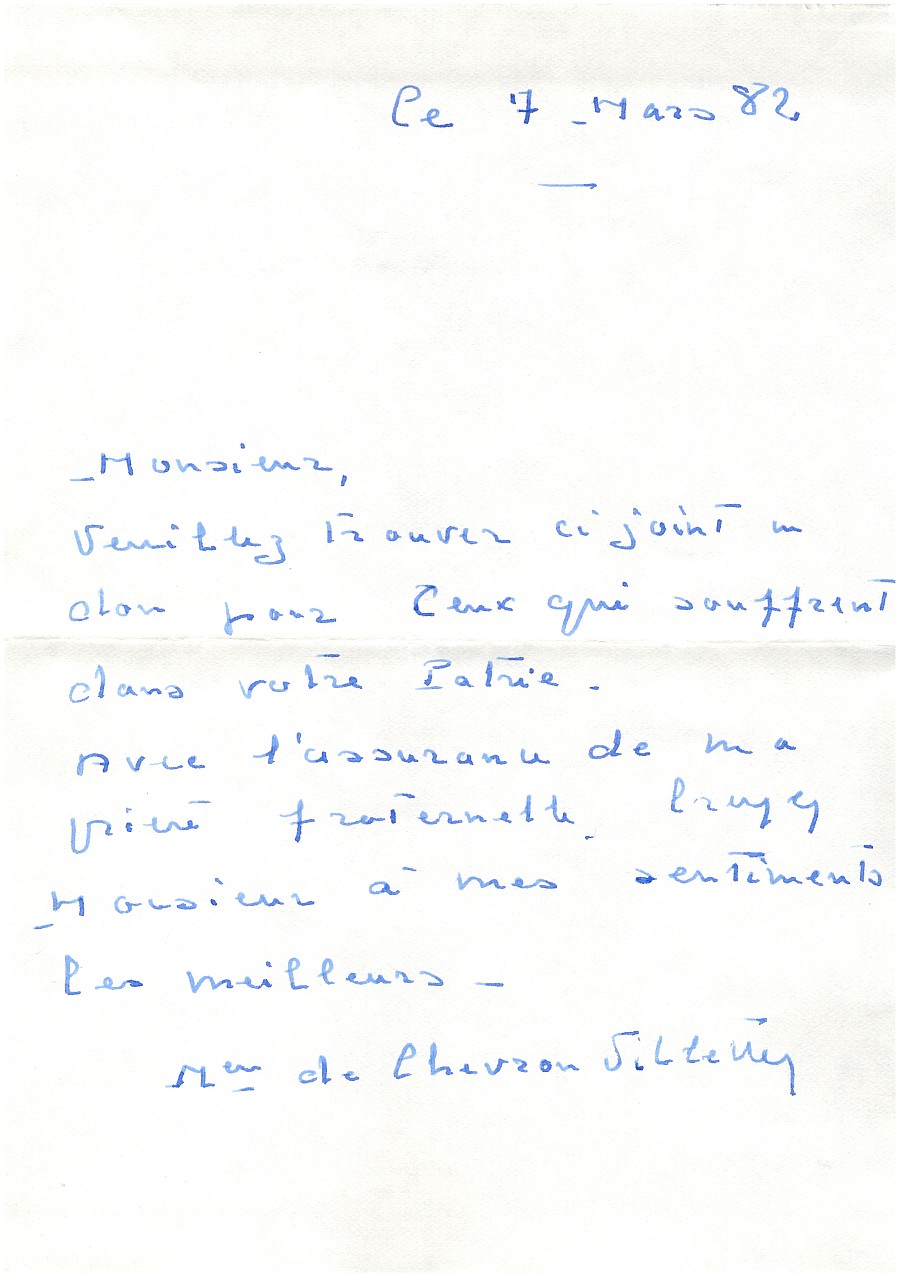 Le 7 Mars 82
Monsieur,
Veuillez trouver ci joint un
don pour Ceux qui souffrent
dans votre Patrie.
Avec l'assurance de ma
prière fraternelle. Croyez
Monsieur à mes sentiments
les meilleurs -
de Chevron Villette